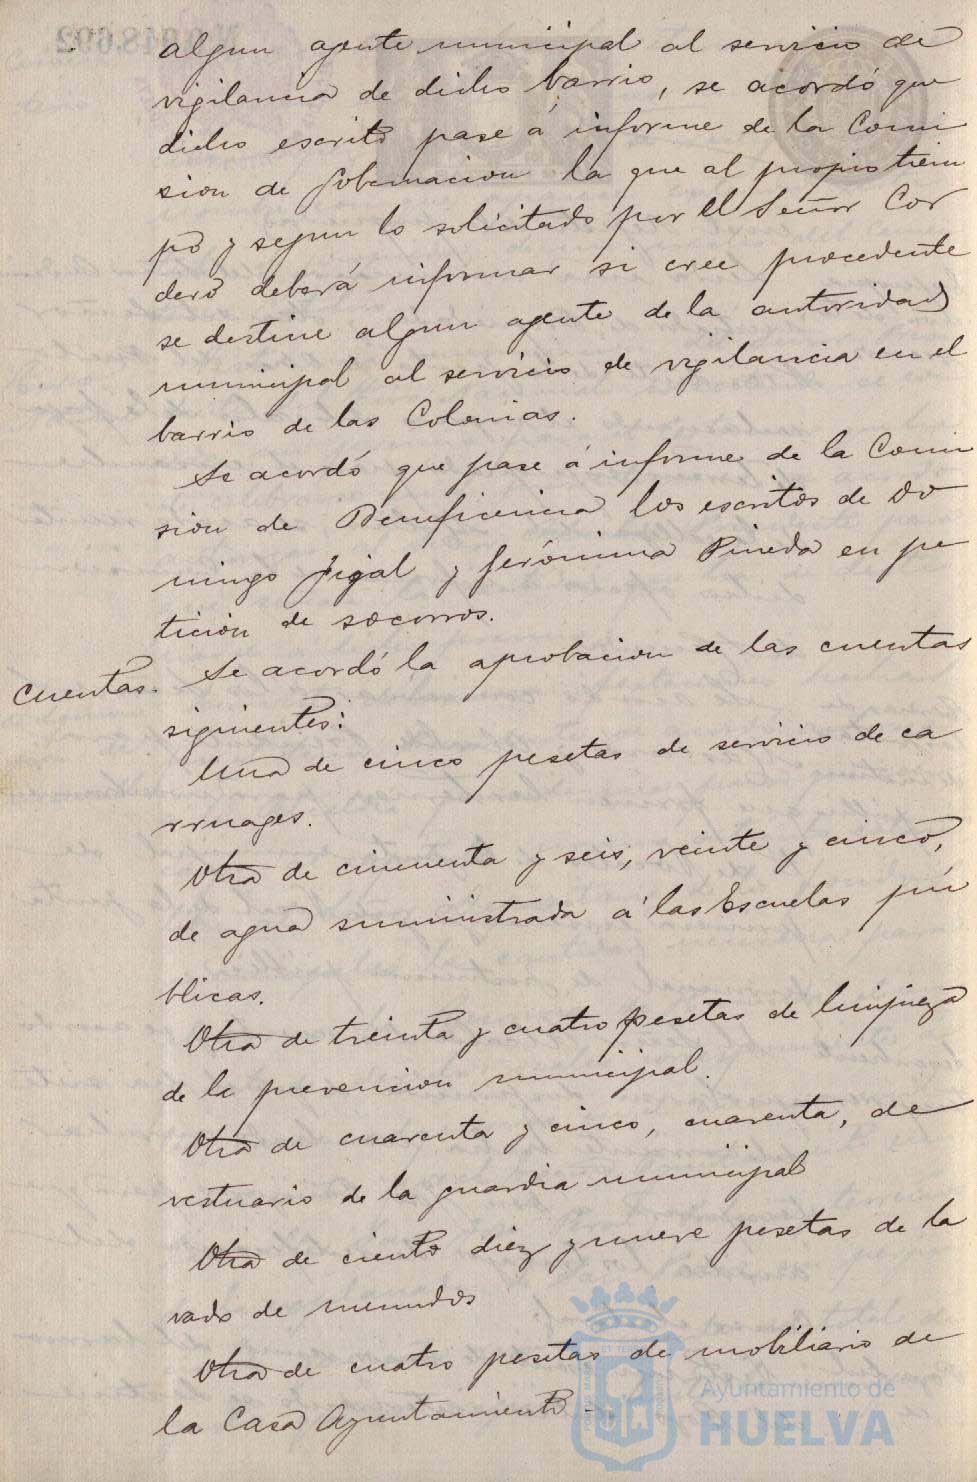 algun agente municipal al servicio de
vigilancia de dicho barrio, se acordó que
dicho escrito pase á informe de la Comi
sion de Gobernacion la que al propio tiem
po y segun lo solicitado por el Señor Cor
dero deberá informar si cree procedente
se destine algun agente de la autoridad
municipal al servicio de vigilancia en el
barrio de las Colonias.
Se acordó que pase á informe de la Comi
sion de Beneficencia los escritos de Do
mingo Jigal y Gerónima Pineda en pe
tición de socorros.
Cuentas. Se acordó la aprobacion de las cuentas
siguientes:
Una de cinco pesetas de servicio de ca
rruages.
Otra de cincuenta y seis, veinte y cinco,
de agua suministrada á las Escuelas pú
blicas.
Otra de treinta y cuatro pesetas de limpieza
de la prevencion municipal.
Otra de cuarenta y cinco, cuarenta, de
vestuario de la guardia municipal
Otra de ciento diez y nueve pesetas de la
vado de menudos
Otra de cuatro pesetas de mobiliario de
la Casa Ayuntamiento -
Ayuntamiento de
HUELVA